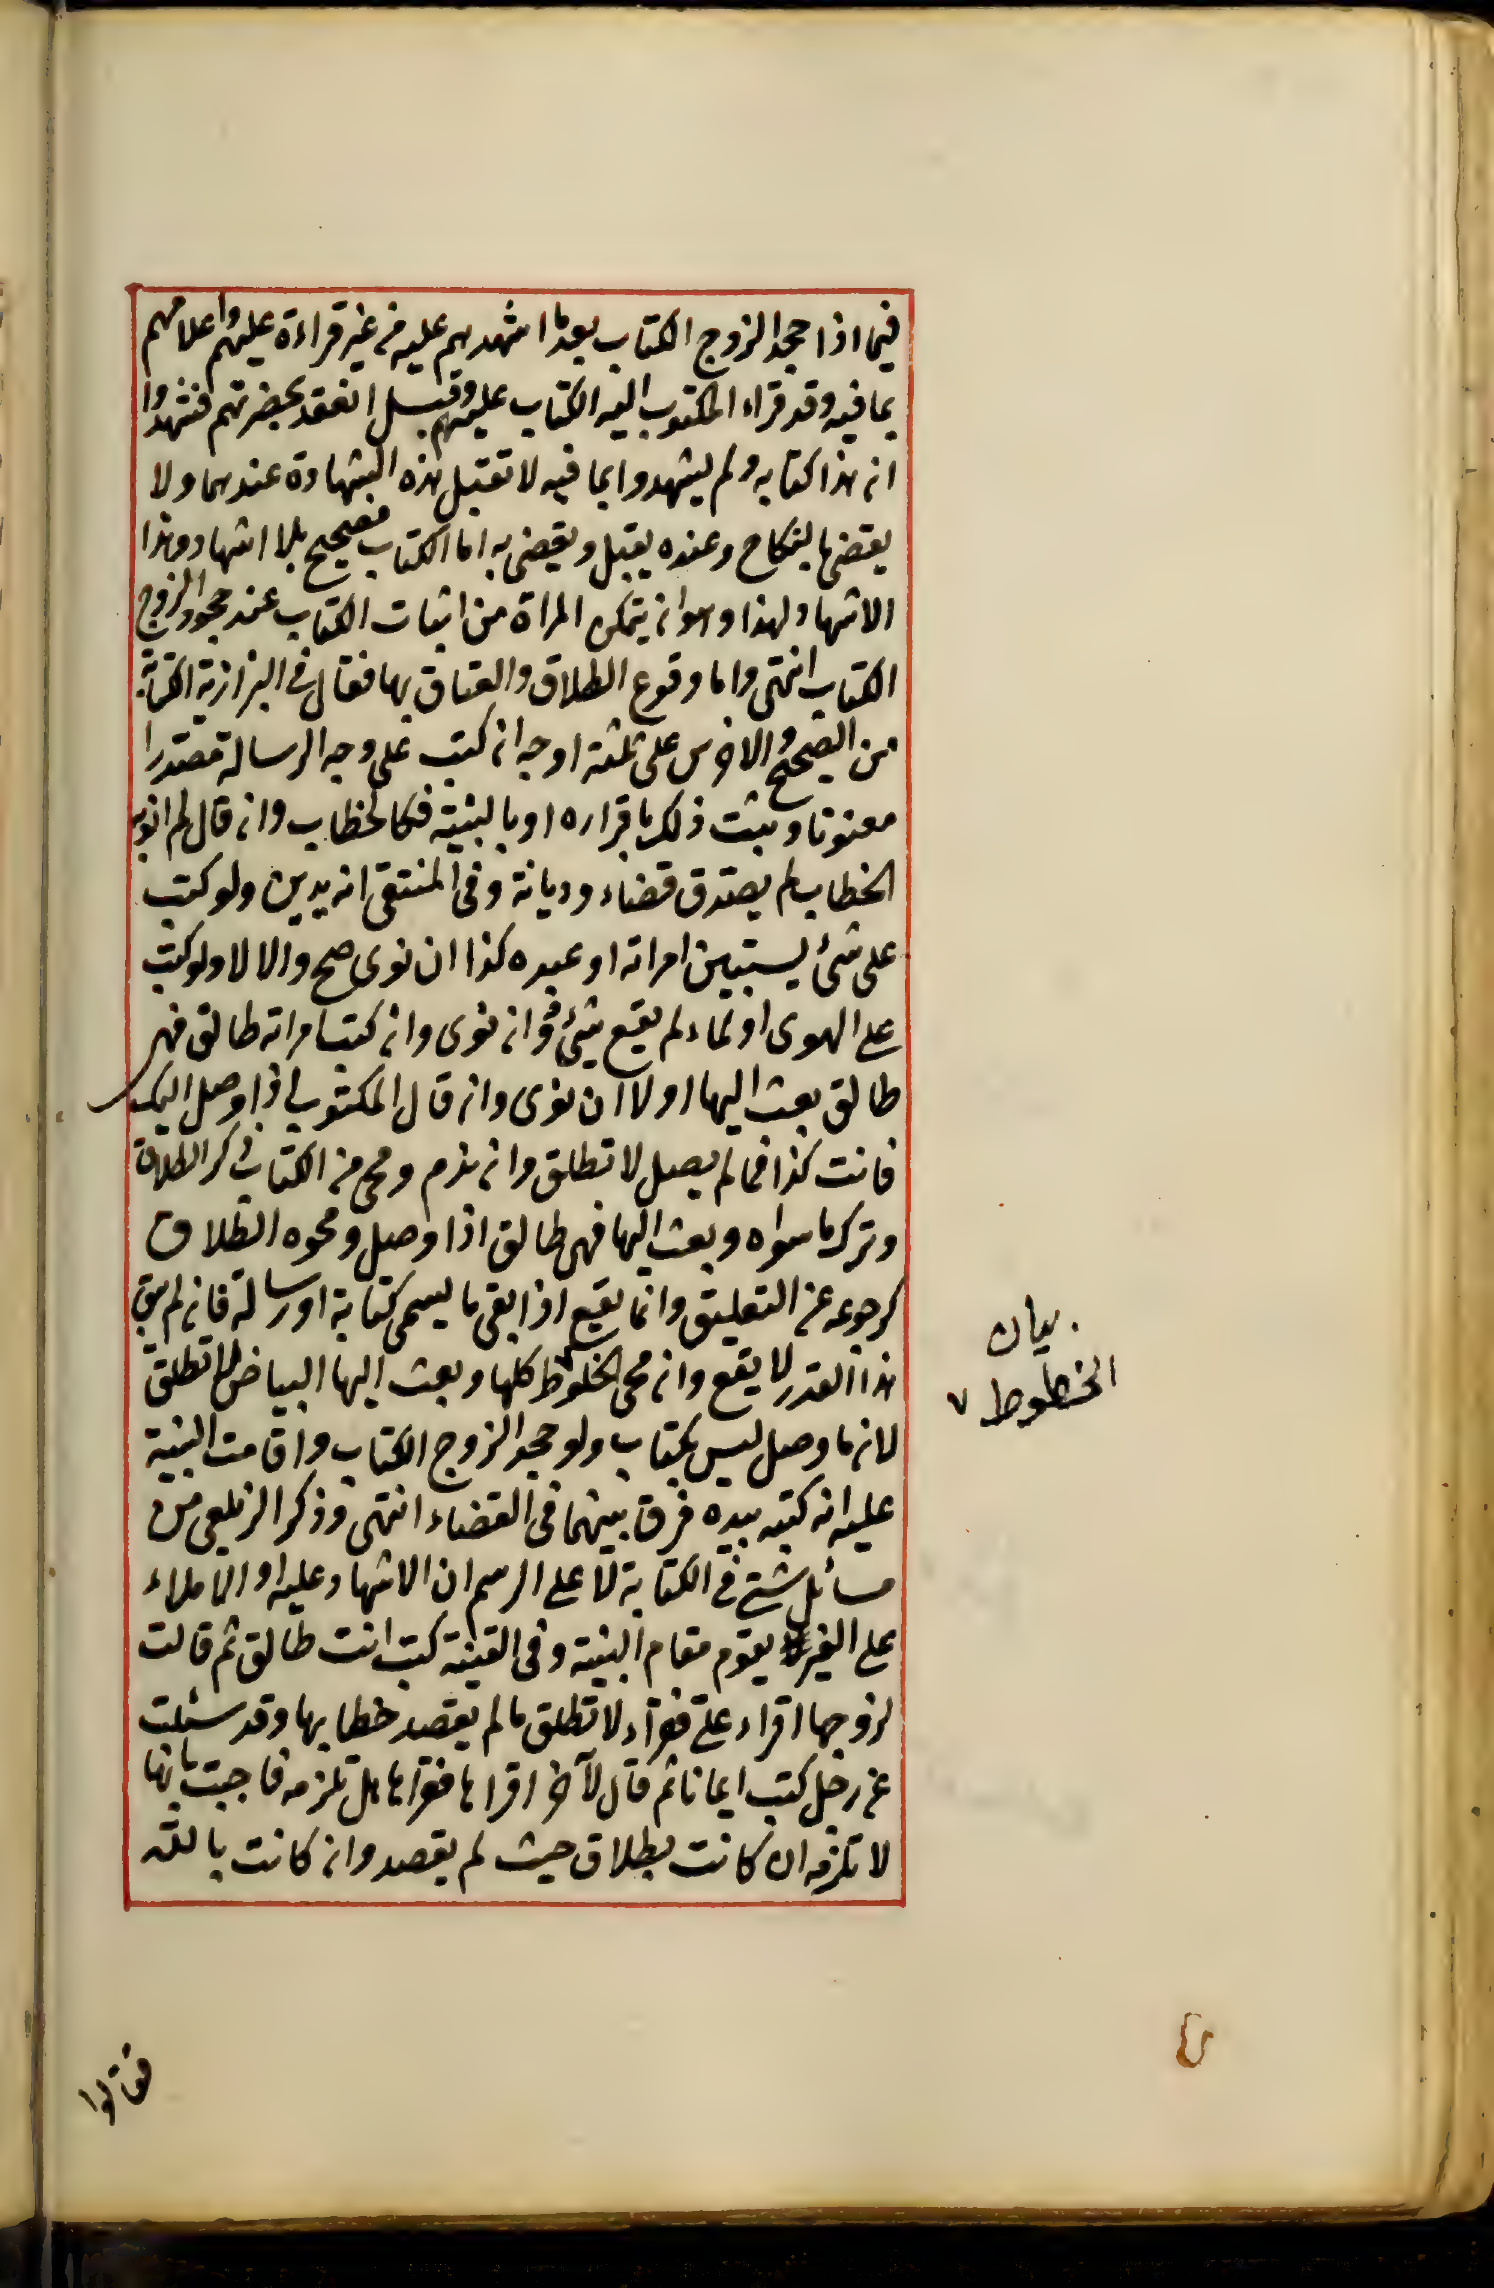 فيما اذا جحد الزوج الكتاب بعدما اشهدهم عليه من غير قراءة عليهم واعلامهم
بما فيه وقد قراء المكتوب اليه الكتاب عليهم وقبل العقد بحضرتهم فشهدوا
ان هذا كتابه ولم يشهدوا بما فيه لا تقبل هذه الشهادة عندهما ولا
يقضى بالنكاح وعنده يقبل ويقضى به اما الكتاب فصحيح بلا اشهاد وهذا
الاشهاد لهذا وهو ان يتمكن المراة من اثبات الكتاب عند جحود الزوج
الكتاب انتهى واما وقوع الطلاق والعتاق بها فقال في البزازية الكتابة
من الصحيح والاخرس على ثلثة اوجه ان كتب على وجه الرسالة مصدرا
معنونا وثبت ذلك باقراره او بالبينة فكالخطاب وان قال لم انو به
الخطاب لم يصدق قضاء وديانة وفى المنتقى انه يدين ولو كتب
على شئ يستبين امراته او عبده كذا ان نوى صح والا لا ولو كتب
على الهوى او الماء لم يقع شئ وان نوى وان كتب امراته طالق فهى
طالق بعث اليها او لا ان نوى وان قال المكتوب اذا وصل اليك
فانت كذا فما لم يصل لا تطلق وان ندم ومحى من الكتاب ذكر الطلاق
وترك ما سواه وبعث اليها فهى طالق اذا وصل ومحوه الطلاق
كرجوعه عن التعليق وانما يقع اذا بقى ما يسمى كتابة او رسالة فان لم يبق
هذا القدر لا يقع وان محى الخطوط كلها وبعث اليها البياض لا تطلق
لان ما وصل ليس بكتاب ولو جحد الزوج الكتاب واقامت البينة
عليه انه كتبه بيده فرق بينهما فى القضاء انتهى وذكر الزيلعى من
مسائل شتى فى الكتابة لا على الرسم ان الاشهاد عليه او الاملاء
على الغير يقوم مقام النية وفى القنية كتب انت طالق ثم قالت
لزوجها اقراء على فقراء لا تطلق ما لم يقصد خطابها وقد سئلت
عن رجل كتب ايمانا ثم قال لآخر اقراها فقراها هل تلزمه فاجبت بانها
لا تلزمه ان كانت بطلاق حيث لم يقصد وان كانت بالله
بيان
الخطوط ٧
فقالوا